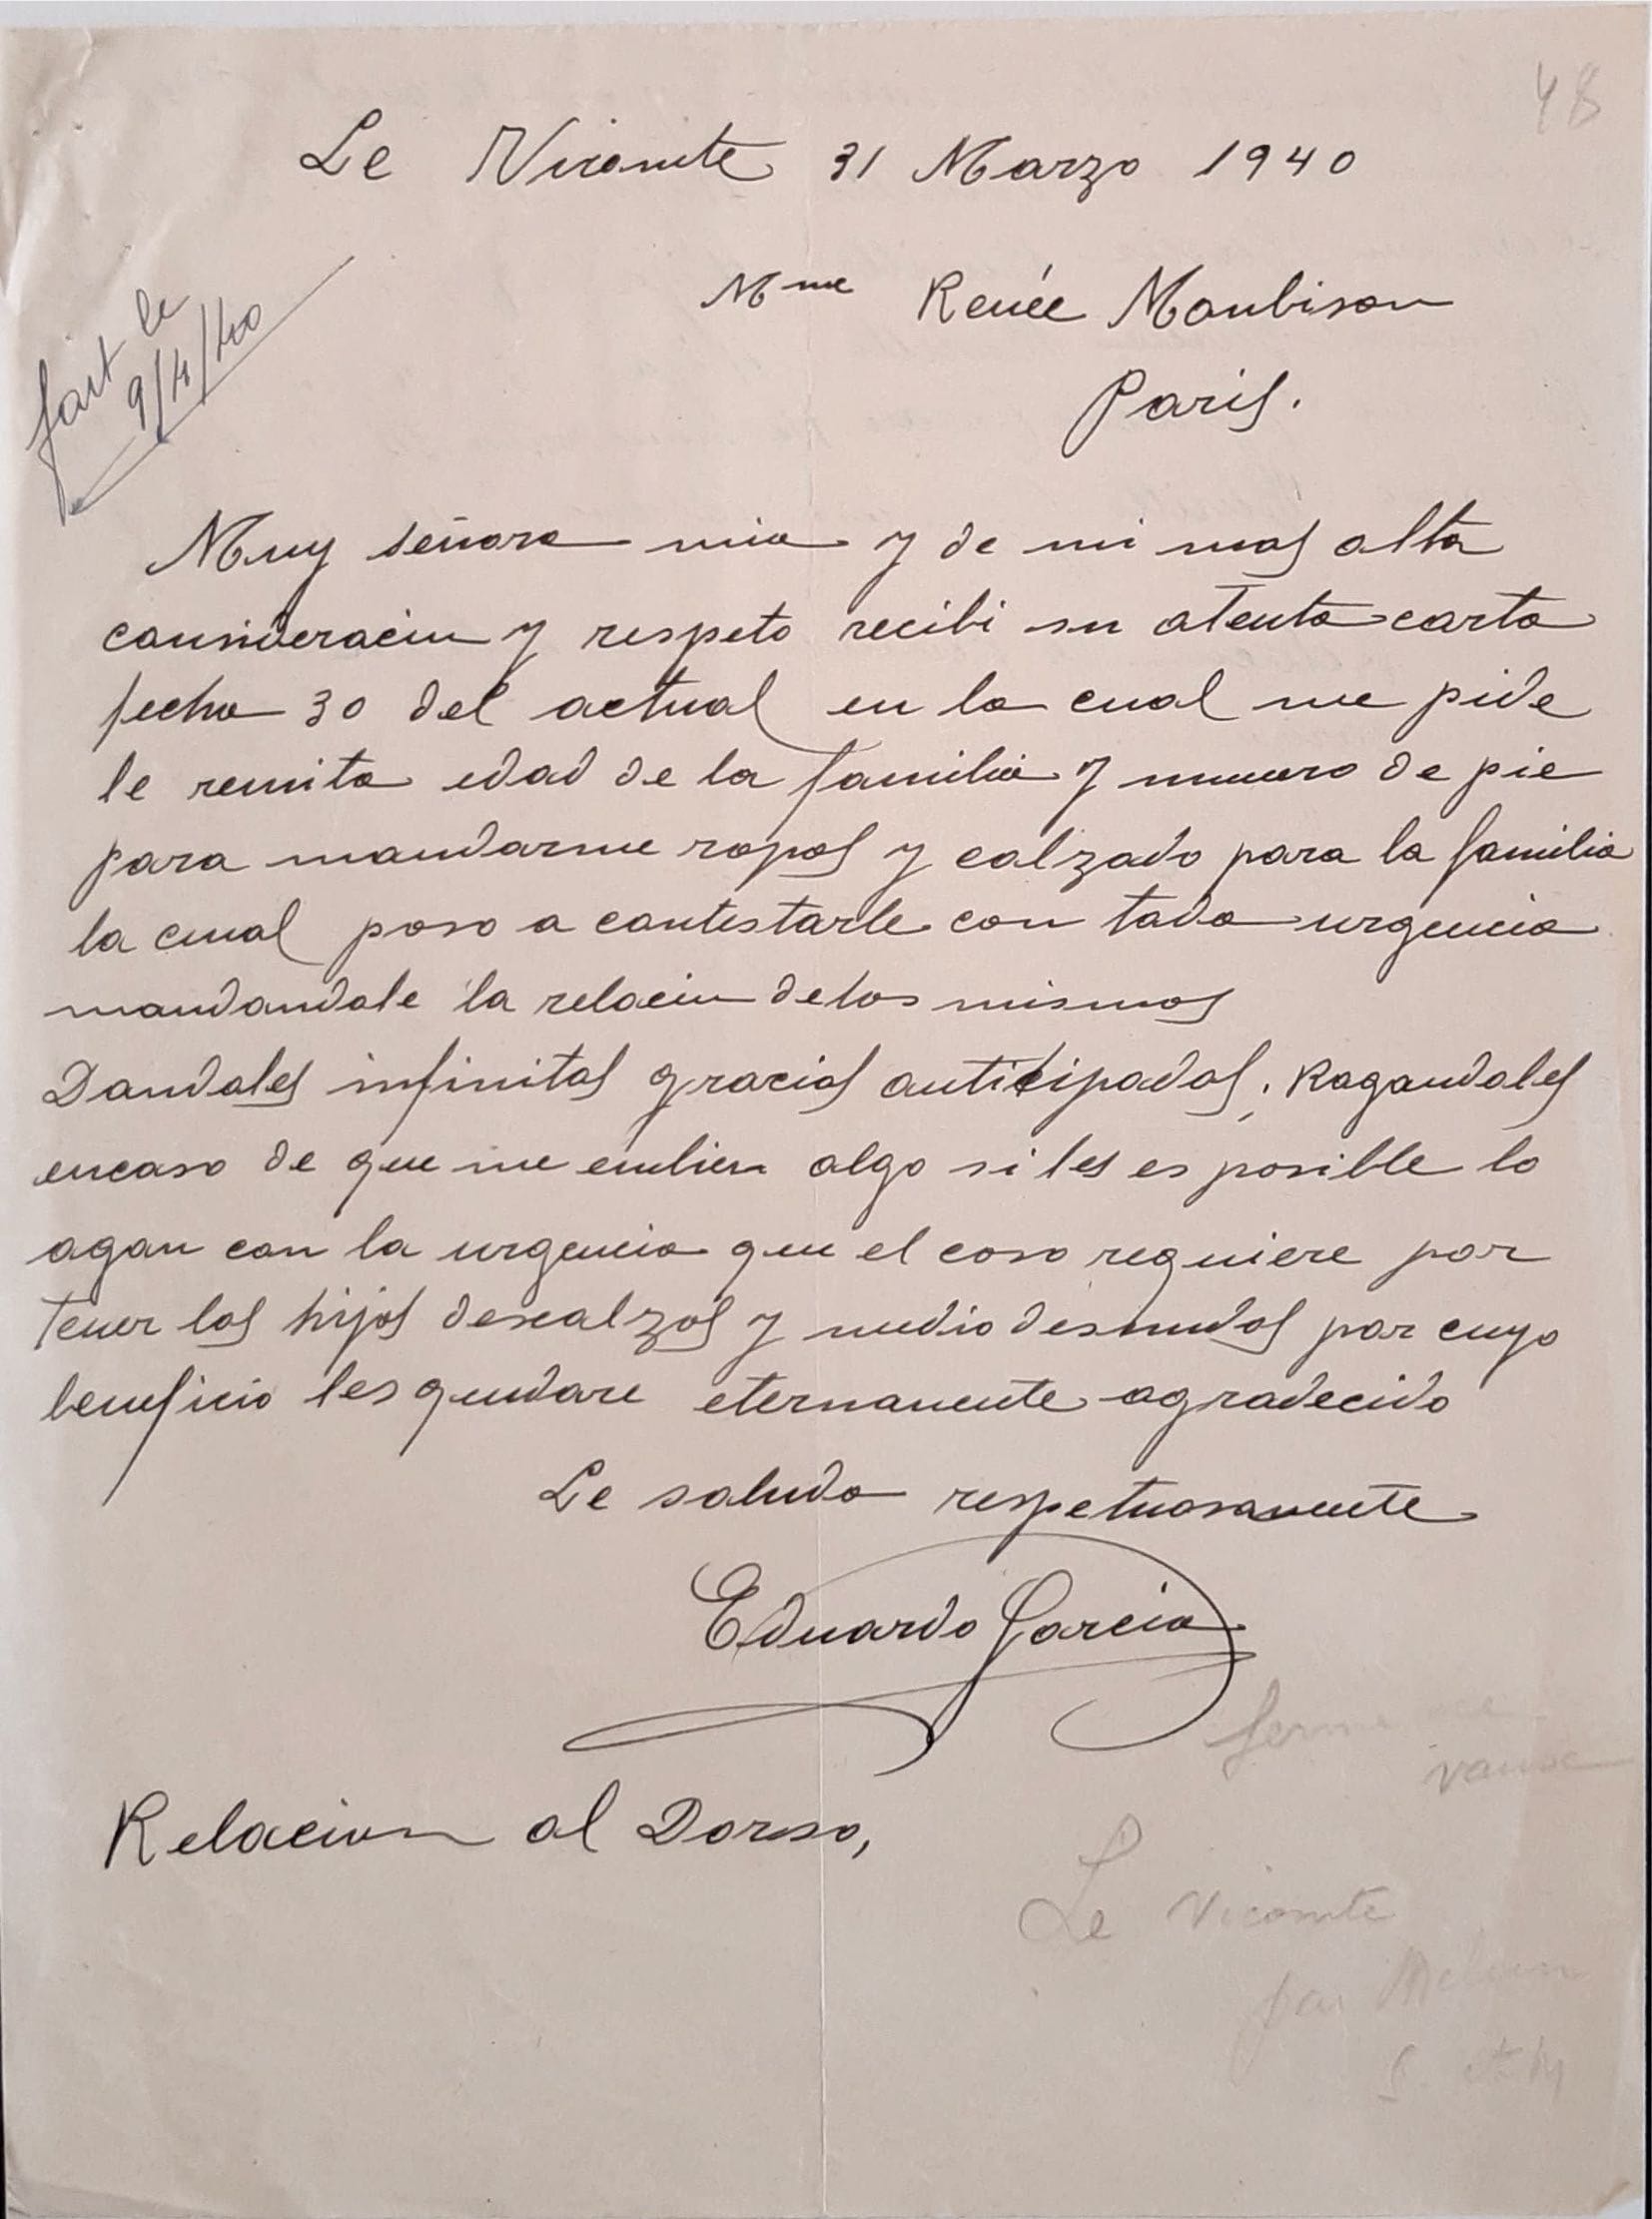 48
Le Vicomte 31 Marzo 1940
Mme Renée Monbison
Paris.
fait le
9/4/40
Muy señora mia y de mi mas alta
consideracion y respeto recibi su atenta carta
fecha 30 del actual en la cual me pide
le remita edad de la familia y numero de pie
para mandarme ropas y calzado para la familia
la cual paso a contestarle con toda urgencia
mandandole la relacion delos mismos
Dandoles infinitas gracias anticipadas; Rogandoles
encaso de que me embien algo si les es posible lo
agan con la urgencia que el caso requiere por
tener los hijos descalzos y medio desnudos por cuyo
beneficio les quedare eternamente agradecido
Le saluda respetuosamente
Eduardo Garcia
Relacion al Dorso,
Le Vicomte
par Melun
S. et M